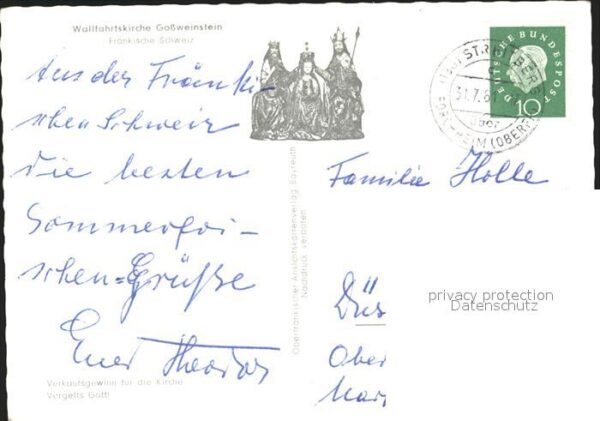 Wallfahrtskirche Goßweinstein
Fränkische Schweiz
Aus der Fränki-
schen Schweiz
die besten
Sommerfri-
schen=Grüße
Euer Theodor
Verkaufsgewinn für die Kirche
Vergelts Gott!
Oberfränkischer Ansichtskartenverlag Bayreuth
Nachdruck verboten
DEUTSCHE BUNDESPOST
10
31.7.61
Familie Holle
Düs
privacy protection
Datenschutz
Ober